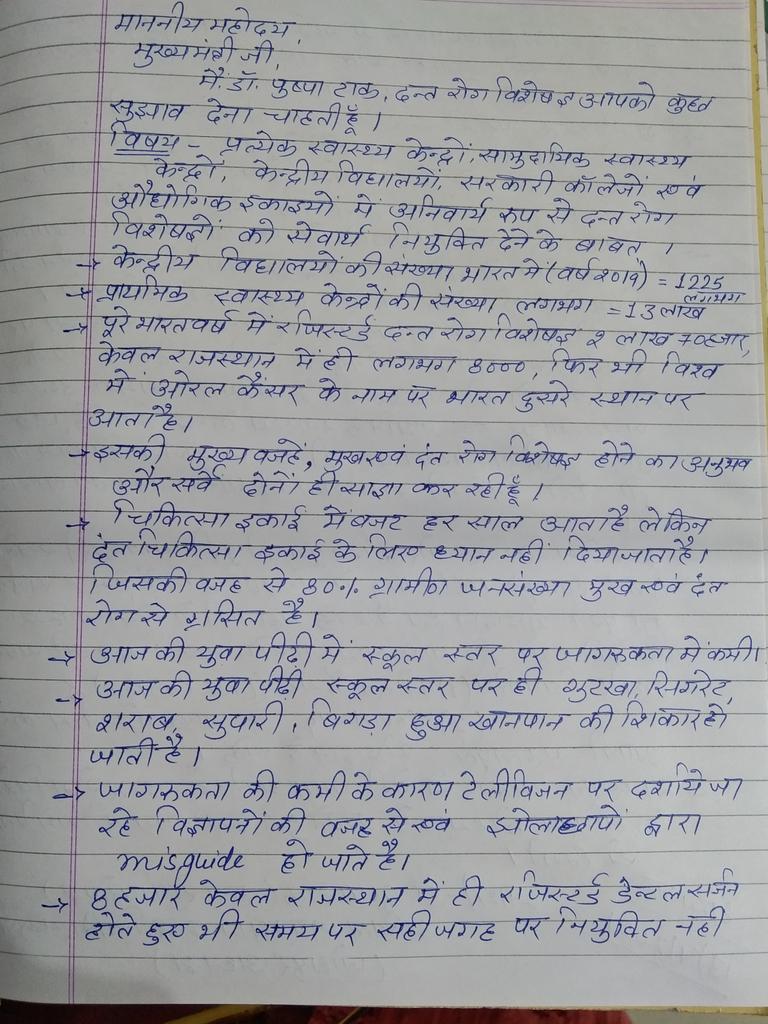 माननीय महोदय,
मुख्यमंत्री जी,
मैं. डॉ. पुष्पा टाक, दन्त रोग विशेषज्ञ आपको कुछ
सुझाव देना चाहती हूँ।
विषय - प्रत्येक स्वास्थ्य केन्द्रों, सामुदायिक स्वास्थ्य
केन्द्रों, केन्द्रीय विद्यालयों, सरकारी कॉलेजों एवं
औद्योगिक इकाइयों में अनिवार्य रूप से दन्त रोग
विशेषज्ञों को सेवार्थ नियुक्ति देने के बाबत ।
→ केन्द्रीय विद्यालयों की संख्या भारत में (वर्ष २०१९) = 1225
लगभग
→ प्राथमिक स्वास्थ्य केन्द्रों की संख्या लगभग = 13 लाख
→ पूरे भारतवर्ष में रजिस्टर्ड दन्त रोग विशेषज्ञ २ लाख 70 हजार,
केवल राजस्थान में ही लगभग 8000, फिर भी विश्व
में ओरल कैंसर के नाम पर भारत दुसरे स्थान पर
आता है।
→ इसकी मुख्य वजहें, मुख एवं दंत रोग विशेषज्ञ होने का अनुभव
और सर्वे दोनों ही साझा कर रही हूँ ।
→ चिकित्सा इकाई में बजट हर साल आता है लेकिन
दंत चिकित्सा इकाई के लिए ध्यान नहीं दिया जाता है।
जिसकी वजह से 80% ग्रामीण जनसंख्या मुख एवं दंत
रोग से ग्रसित है।
→ आज की युवा पीढ़ी में स्कूल स्तर पर जागरुकता में कमी।
→ आज की युवा पीढ़ी स्कूल स्तर पर ही गुटखा, सिगरेट,
शराब, सुपारी, बिगड़ा हुआ खानपान की शिकार हो
जाती है।
→ जागरुकता की कमी के कारण टेलीविजन पर दर्शाये जा
रहे विज्ञापनों की वजह से एवं झोलाछापों द्वारा
misguide हो जाते है।
→ 8 हजार केवल राजस्थान में ही रजिस्टर्ड डेन्टल सर्जन
होते हुए भी समय पर सही जगह पर नियुक्ति नही